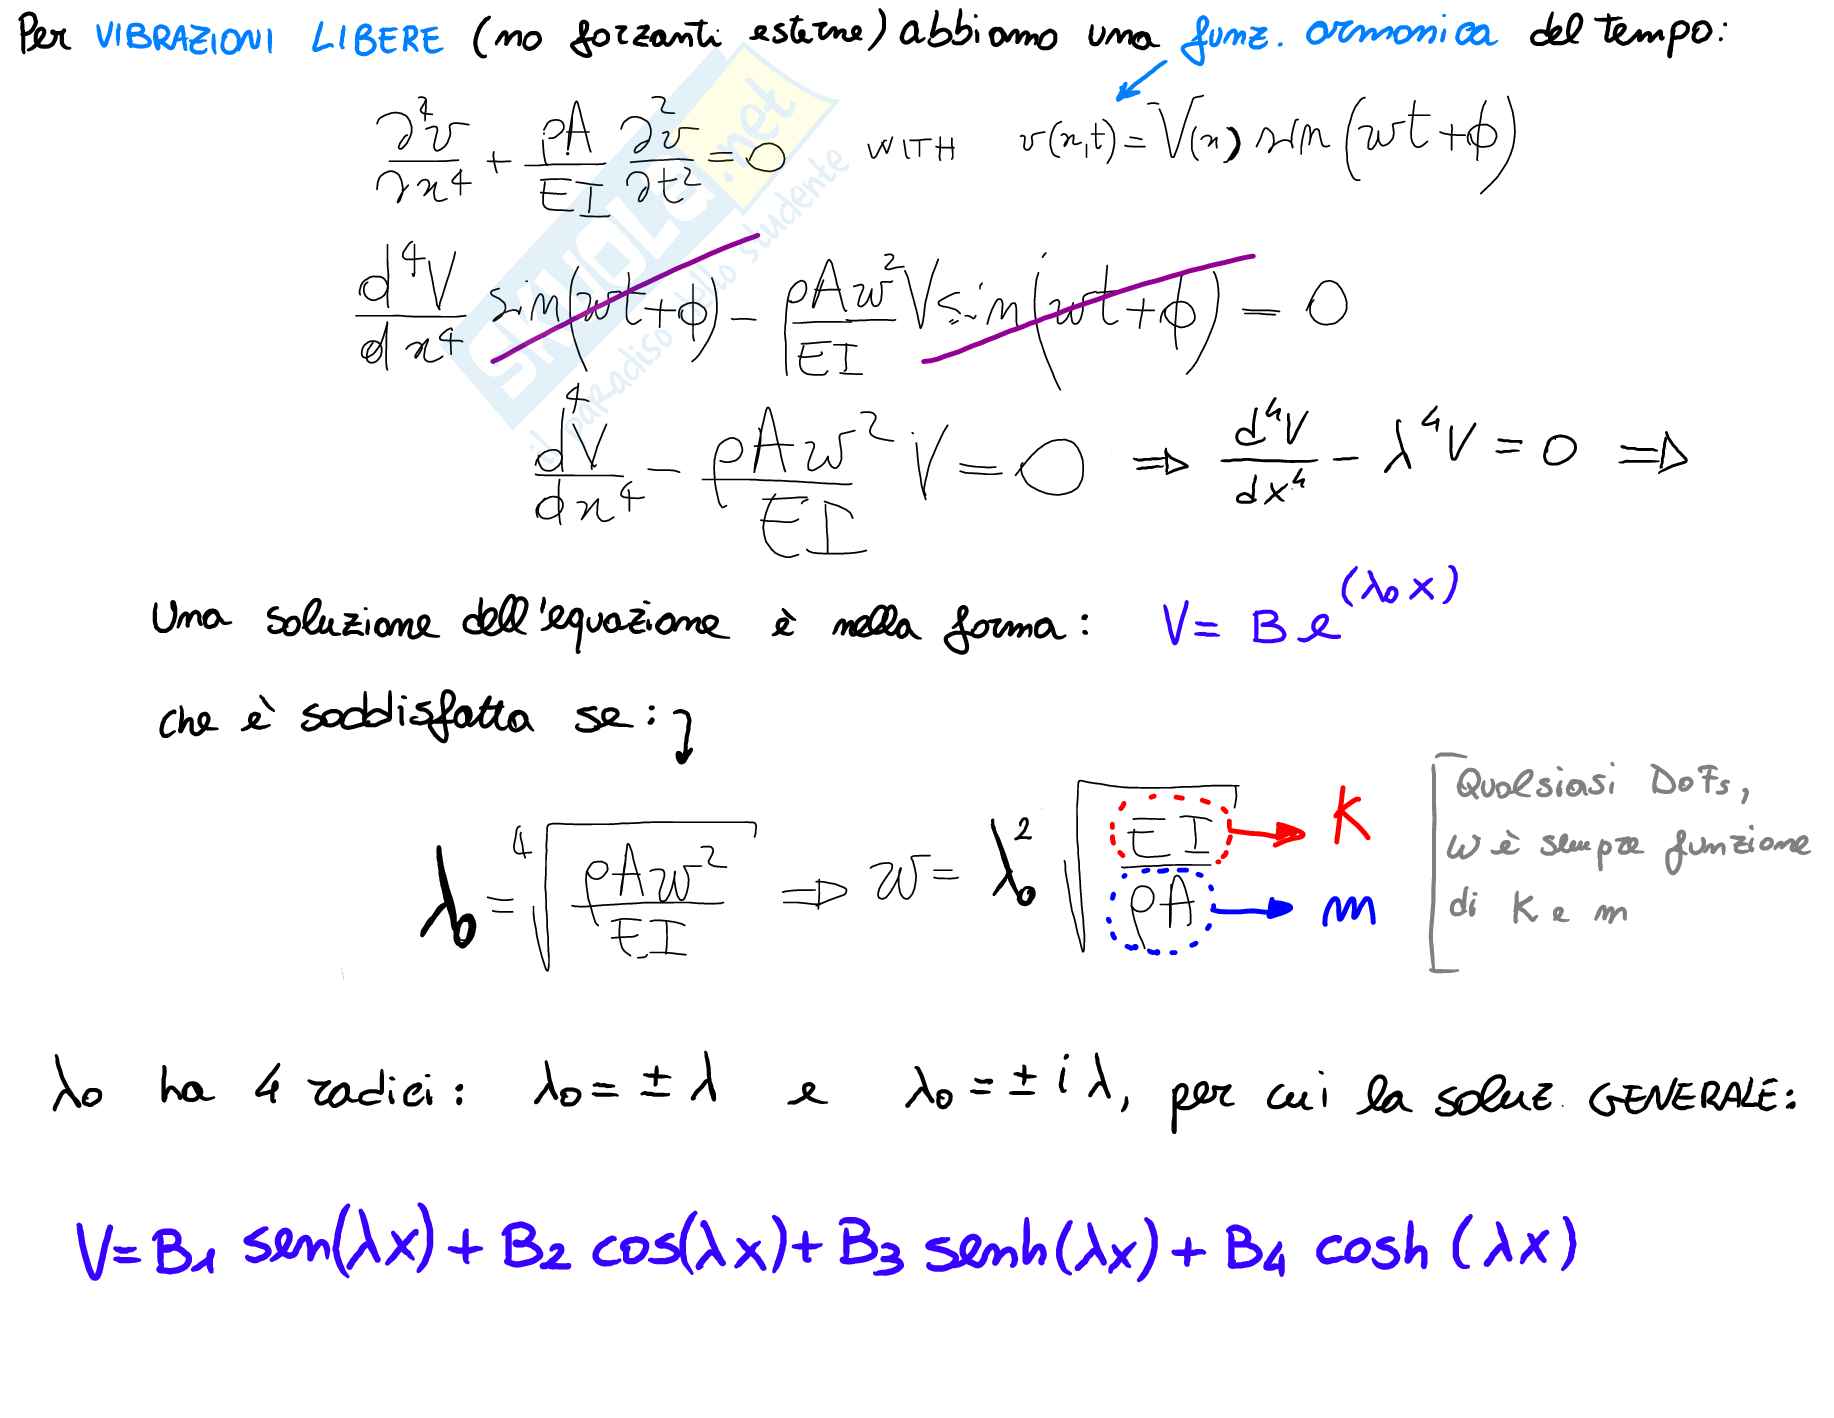 Per VIBRAZIONI LIBERE (no forzanti esterne) abbiamo una funz. armonica del tempo:
∂⁴v/∂x⁴ + ρA/EI ∂²v/∂t² = 0 WITH v(x,t) = V(x) sin(ωt+ϕ)
d⁴V/dx⁴ sin(ωt+ϕ) − ρAω²/EI V sin(ωt+ϕ) = 0
d⁴V/dx⁴ − ρAω²/EI V = 0 ⇒ d⁴V/dx⁴ − λ⁴V = 0 ⇒
Una soluzione dell'equazione è nella forma: V = B e^(λ₀x)
che è soddisfatta se:
λ₀ = ⁴√(ρAω²/EI) ⇒ ω = λ₀² √(EI/ρA) → K → m
Qualsiasi DoFs,
ω è sempre funzione
di K e m
λ₀ ha 4 radici: λ₀ = ± λ e λ₀ = ± i λ, per cui la soluz. GENERALE:
V = B₁ sen(λx) + B₂ cos(λx) + B₃ senh(λx) + B₄ cosh(λx)
SKUOLA.net
il paradiso dello studente